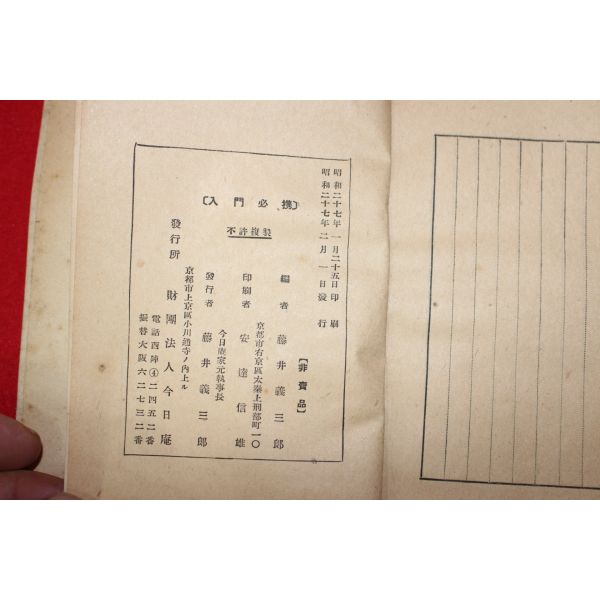 昭和二十七年一月二十五日印刷
昭和二十七年二月一日發行
【非賣品】
〔入門必携〕
不許複製
編者 藤井義三郎
京都市右京區太秦上刑部町一〇
印刷者 安達信雄
今日庵家元執事長
發行者 藤井義三郎
京都市上京區小川通寺ノ内上ル
發行所 財團法人今日庵
電話西陣④二四五二番
振替大阪六二七三二番